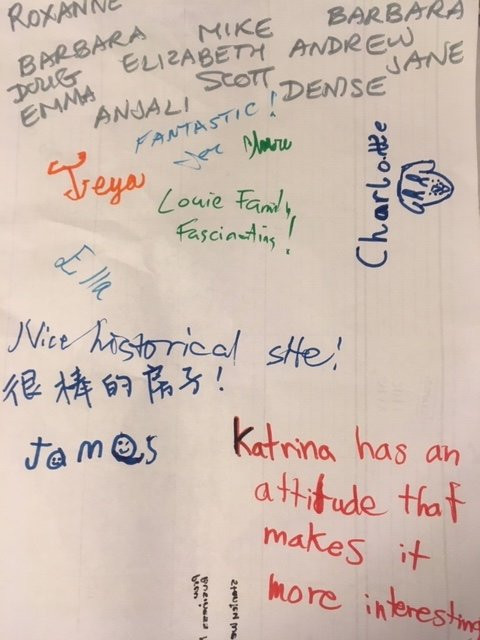 ROXANNE
BARBARA
MIKE
BARBARA
DOUG
ELIZABETH
ANDREW
SCOTT
JANE
EMMA
ANJALI
DENISE
FANTASTIC!
Teya
Louie Family
Fascinating!
Charlotte
Ella
Nice historical site!
很棒的房子!
James
Katrina has an
attitude that
makes it
more interesting